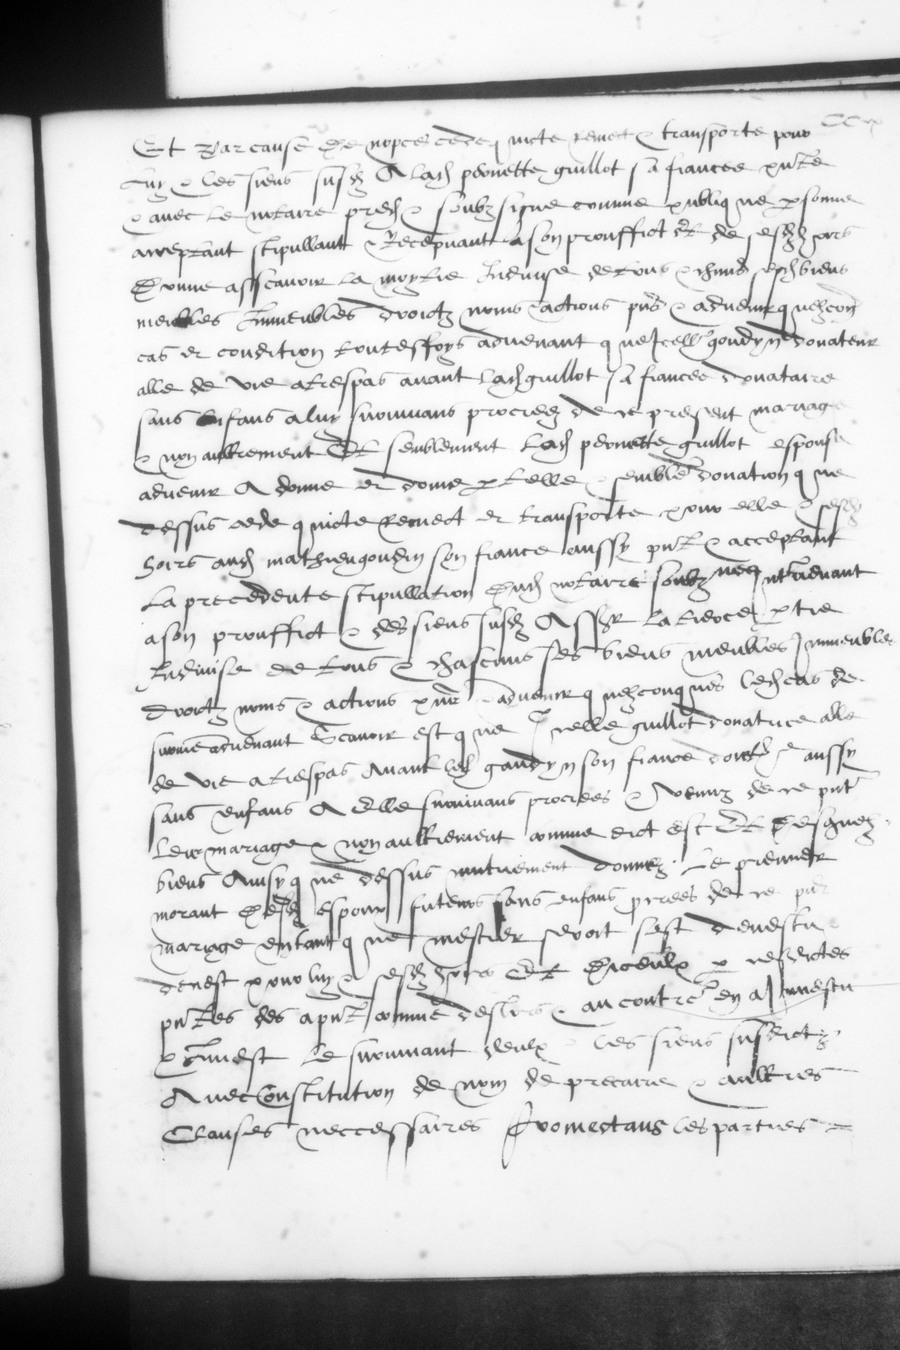 Et par cause de nopces cede quicte remect & transporte pour
luy & les siens susd A lad peronette guillot sa fiancee pnte
& avec le notaire pred & soubz signe comme publique psonne
acceptant stipullant & Recepvant a son prouffict et de sesd hoirs
Donne assscavoir la moytie Indivise de tous & chuns sesd biens
meubles Immeubles droictz noms & actions pns & advenir quelzcon
cas et condition toutesfoys advenant que Icell goudyn donateur
alle de vie a trespas avant lad guillot sa fiancee donataire
sans enfans a luy survivans procreez de ce present mariage
& non aultrement Et semblement lad peronette guillot espouse
advenir A donne et donne p telle & semble donation que
dessus cede quicte Remect et transporte pour elle & sesd
hoirs aud mathieu goudin son fiance aussy pnt & acceptant
la precedente stipullation dud notaire soubz ne Intervenant
a son prouffict & des siens susd Asscr la tierce ptie
Indivise de tous & chascuns ses biens meubles Immeubles
droictz noms & actions pns & advenir quelzconques led cas de
survie advenant Scavoir est que Icelle guillot donatrice alle
de vie a trespas Avant led goudyn son fiance aussy
sans enfans A Elle survivans procrees & Venuz de ce pnt
leur mariage & non aultrement comme dict est Et desquelz
biens Ainsy que dessus mutuement donnez Le premier
morant desd espoux futeurs sans enfans procrees de ce pnt
mariage entant que mestier seroit sest devestu
devest pour luy & sesd hoirs Et Diceulx p cesdictes
pntes des a pnt comme deslors & au contre en a Investu
& Invest le survivant deulx & les siens susdictz
Avec Constitution de nom de precaire & aultres
Clauses neccessaires Promectans les parties